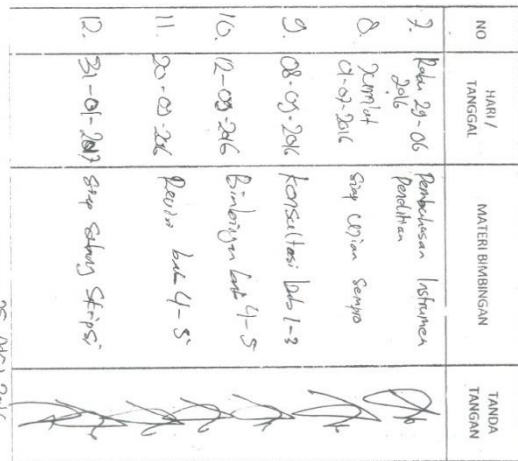 NO
HARI / TANGGAL
MATERI BIMBINGAN
TANDA TANGAN
7.
Rabu 29-06
2016
Pembahasan Instrumen
Penelitian
8.
Jum'at
01-07-2016
Siap Ujian Sempro
9.
08-09-2016
Konsultasi bab 1-3
10.
12-09-2016
Bimbingan bab 4-5
11.
20-09-2016
Revisi bab 4-5
12.
31-01-2017
Siap Sidang Skripsi